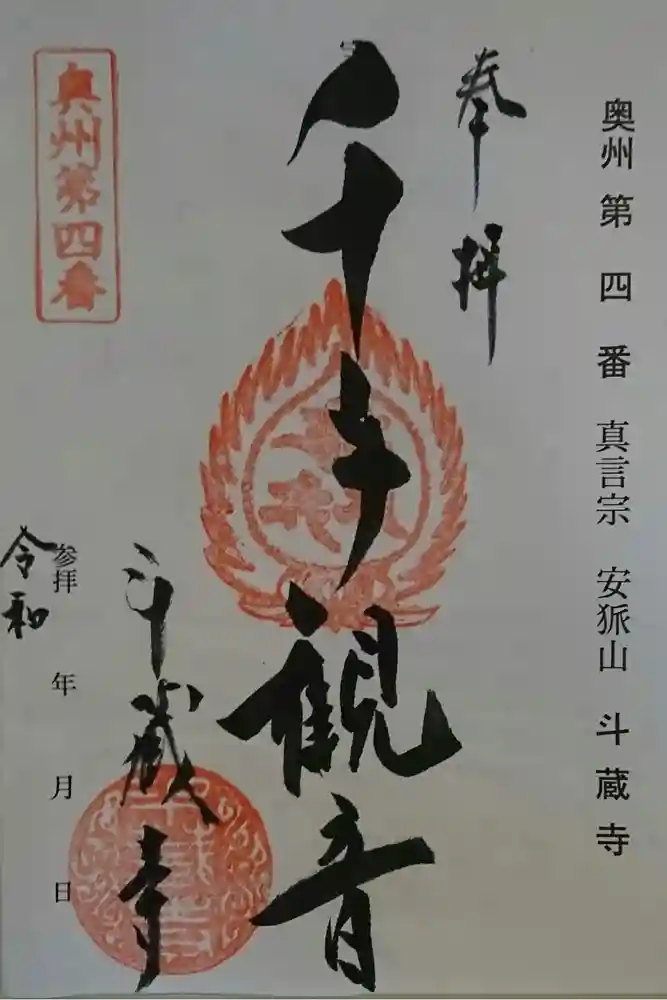 奥州 第 四 番 真言宗 安狐山 斗蔵寺
奉拝
千手観音
斗蔵寺
奥州第四番
参拝 年 月 日
令和